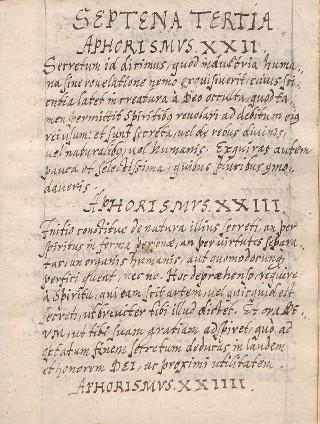 SEPTENA TERTIA
APHORISMVS XXII
Secretum id dicimus, quod industria huma-
na sine revelatione nemo exquisiverit, cuius sci-
entia latet in creatura à Deo occulta, quod ta-
men permittit spiritibus revelari ad debitum eius
rei usum: et sunt secreta, vel de rebus divinis,
vel naturalibus, vel humanis. Exquiras autem
pauca et selectissima, quibus pluribus com̄o-
daveris.
APHORISMVS XXIII.
Initio constitue de natura illius secreti, an per
spiritus in forma personæ, an per virtutes separa-
tas, an organis humanis, aut quomodocunq;
perfici queat, nec ne. Hoc depræhenso, require
à Spiritu, qui eam scit artem, vel quicquid est
secreti, ut breviter tibi illud dictet. Et ora DE-
VM, ut tibi suam gratiam adspiret, quo ad
optatum finem secretum deducas in laudem
et honorem DEI, ac proximi utilitatem.
APHORISMVS XXIIII.